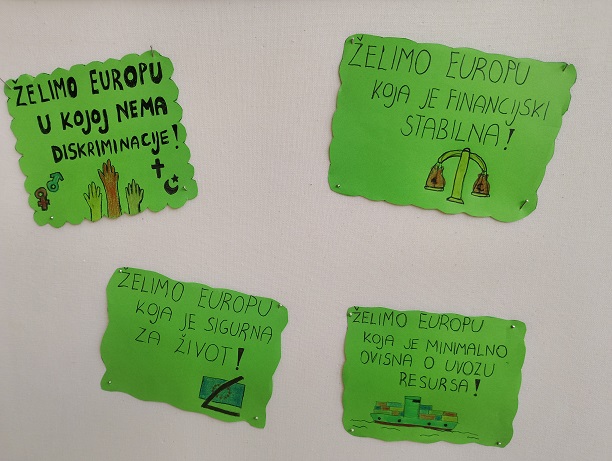 ŽELIMO EUROPU
U KOJOJ NEMA
DISKRIMINACIJE!
ŽELIMO EUROPU
KOJA JE FINANCIJSKI
STABILNA!
ŽELIMO EUROPU
KOJA JE SIGURNA
ZA ŽIVOT!
ŽELIMO EUROPU
KOJA JE MINIMALNO
OVISNA O UVOZU
RESURSA!